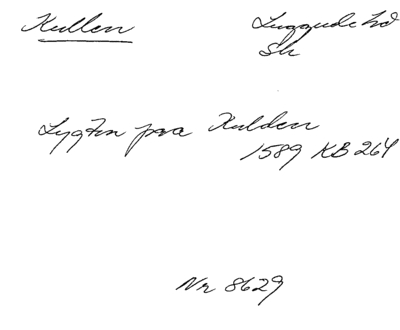 Kullen
Luggude hd
Sk
Lygten paa Kulden
1589 KB 264
Nr 8629